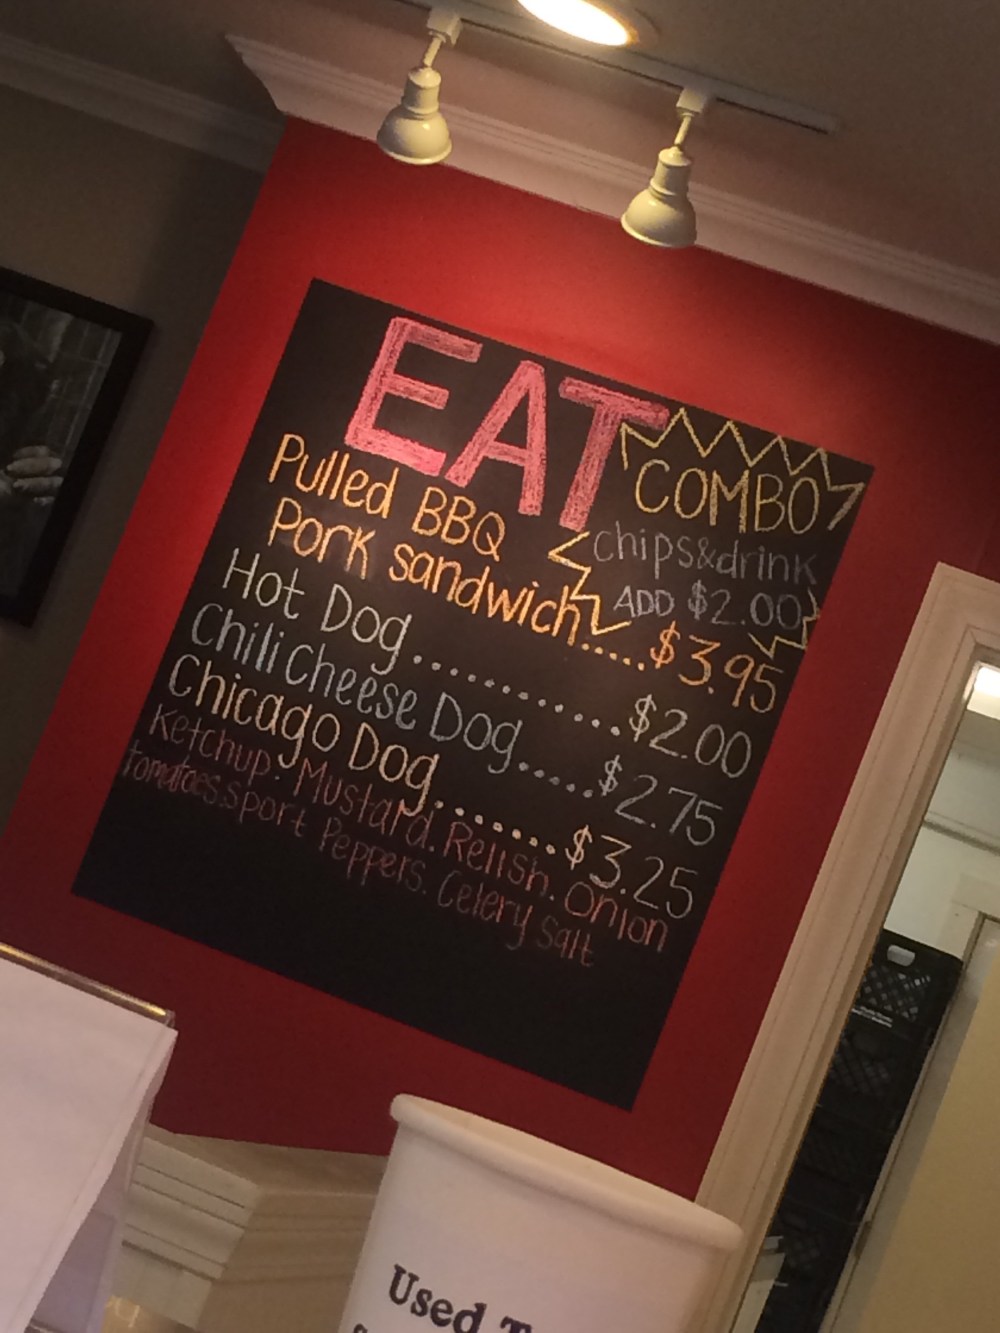 EAT
COMBO
chips&drink
ADD $2.00
Pulled BBQ
Pork sandwich......$3.95
Hot Dog..............$2.00
Chili Cheese Dog.....$2.75
Chicago Dog........$3.25
Ketchup. Mustard. Relish. Onion
tomatoes.sport Peppers. Celery salt
Used